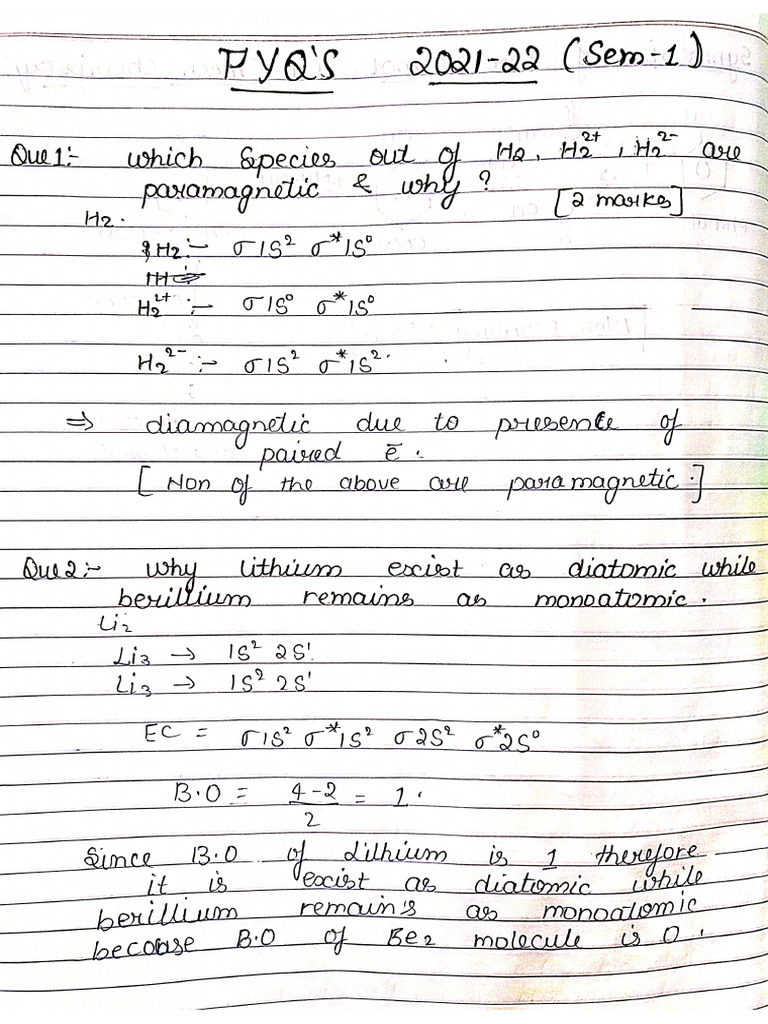 PYQ'S 2021-22 (Sem-1)
Que 1:- which species out of H2, H2²⁺, H2²⁻ are
paramagnetic & why?
[2 marks]
H2.
H2 :- σ1S² σ*1S⁰
H2²⁺ :- σ1S⁰ σ*1S⁰
H2²⁻ :- σ1S² σ*1S².
⇒ diamagnetic due to presence of
paired ē.
[Non of the above are paramagnetic.]
Que 2:- why lithium excist as diatomic while
berillium remains as monoatomic.
Li2
Li3 → 1S² 2S¹.
Li3 → 1S² 2S¹
EC = σ1S² σ*1S² σ2S² σ*2S⁰
B.O = 4-2/2 = 1.
Since B.O of Lithium is 1 therefore
it is excist as diatomic while
berillium remain's as monoatomic
becouse B.O of Be2 molecule is 0.